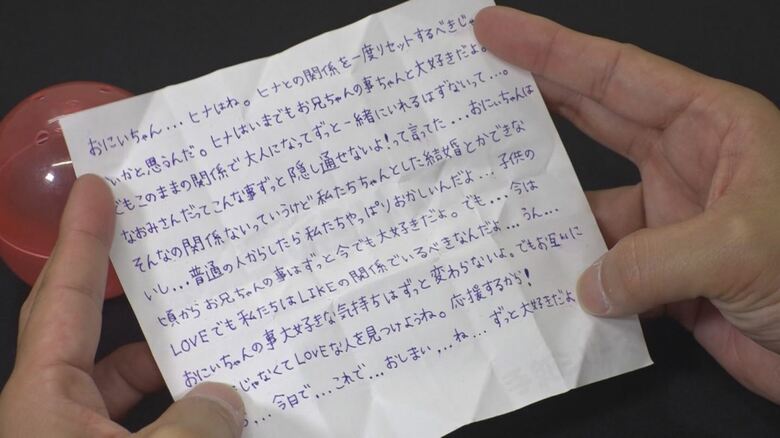 おにいちゃん...ヒナはね。ヒナとの関係を一度リセットするべきじゃ
いかと思うんだ。ヒナはいまでもお兄ちゃんの事ちゃんと大好きだよ。
でもこのままの関係で大人になってずっと一緒にいれるはずないって...。
なおみさんだってこんな事ずっと隠し通せないよ!って言ってた...おにいちゃんは
そんなの関係ないっていうけど私たちちゃんとした結婚とかできな
いし...普通の人からしたら私たちやっぱりおかしいんだよ...子供の
頃からお兄ちゃんの事はずっと今でも大好きだよ。でも...今は
LOVEでも私たちはLIKEの関係でいるべきなんだよ...うん...
おにいちゃんの事大好きな気持ちはずっと変わらないよ。でもお互いに
じゃなくてLOVEな人を見つけようね。応援するから!
...今日で...これで...おしまい...ね...ずっと大好きだよ